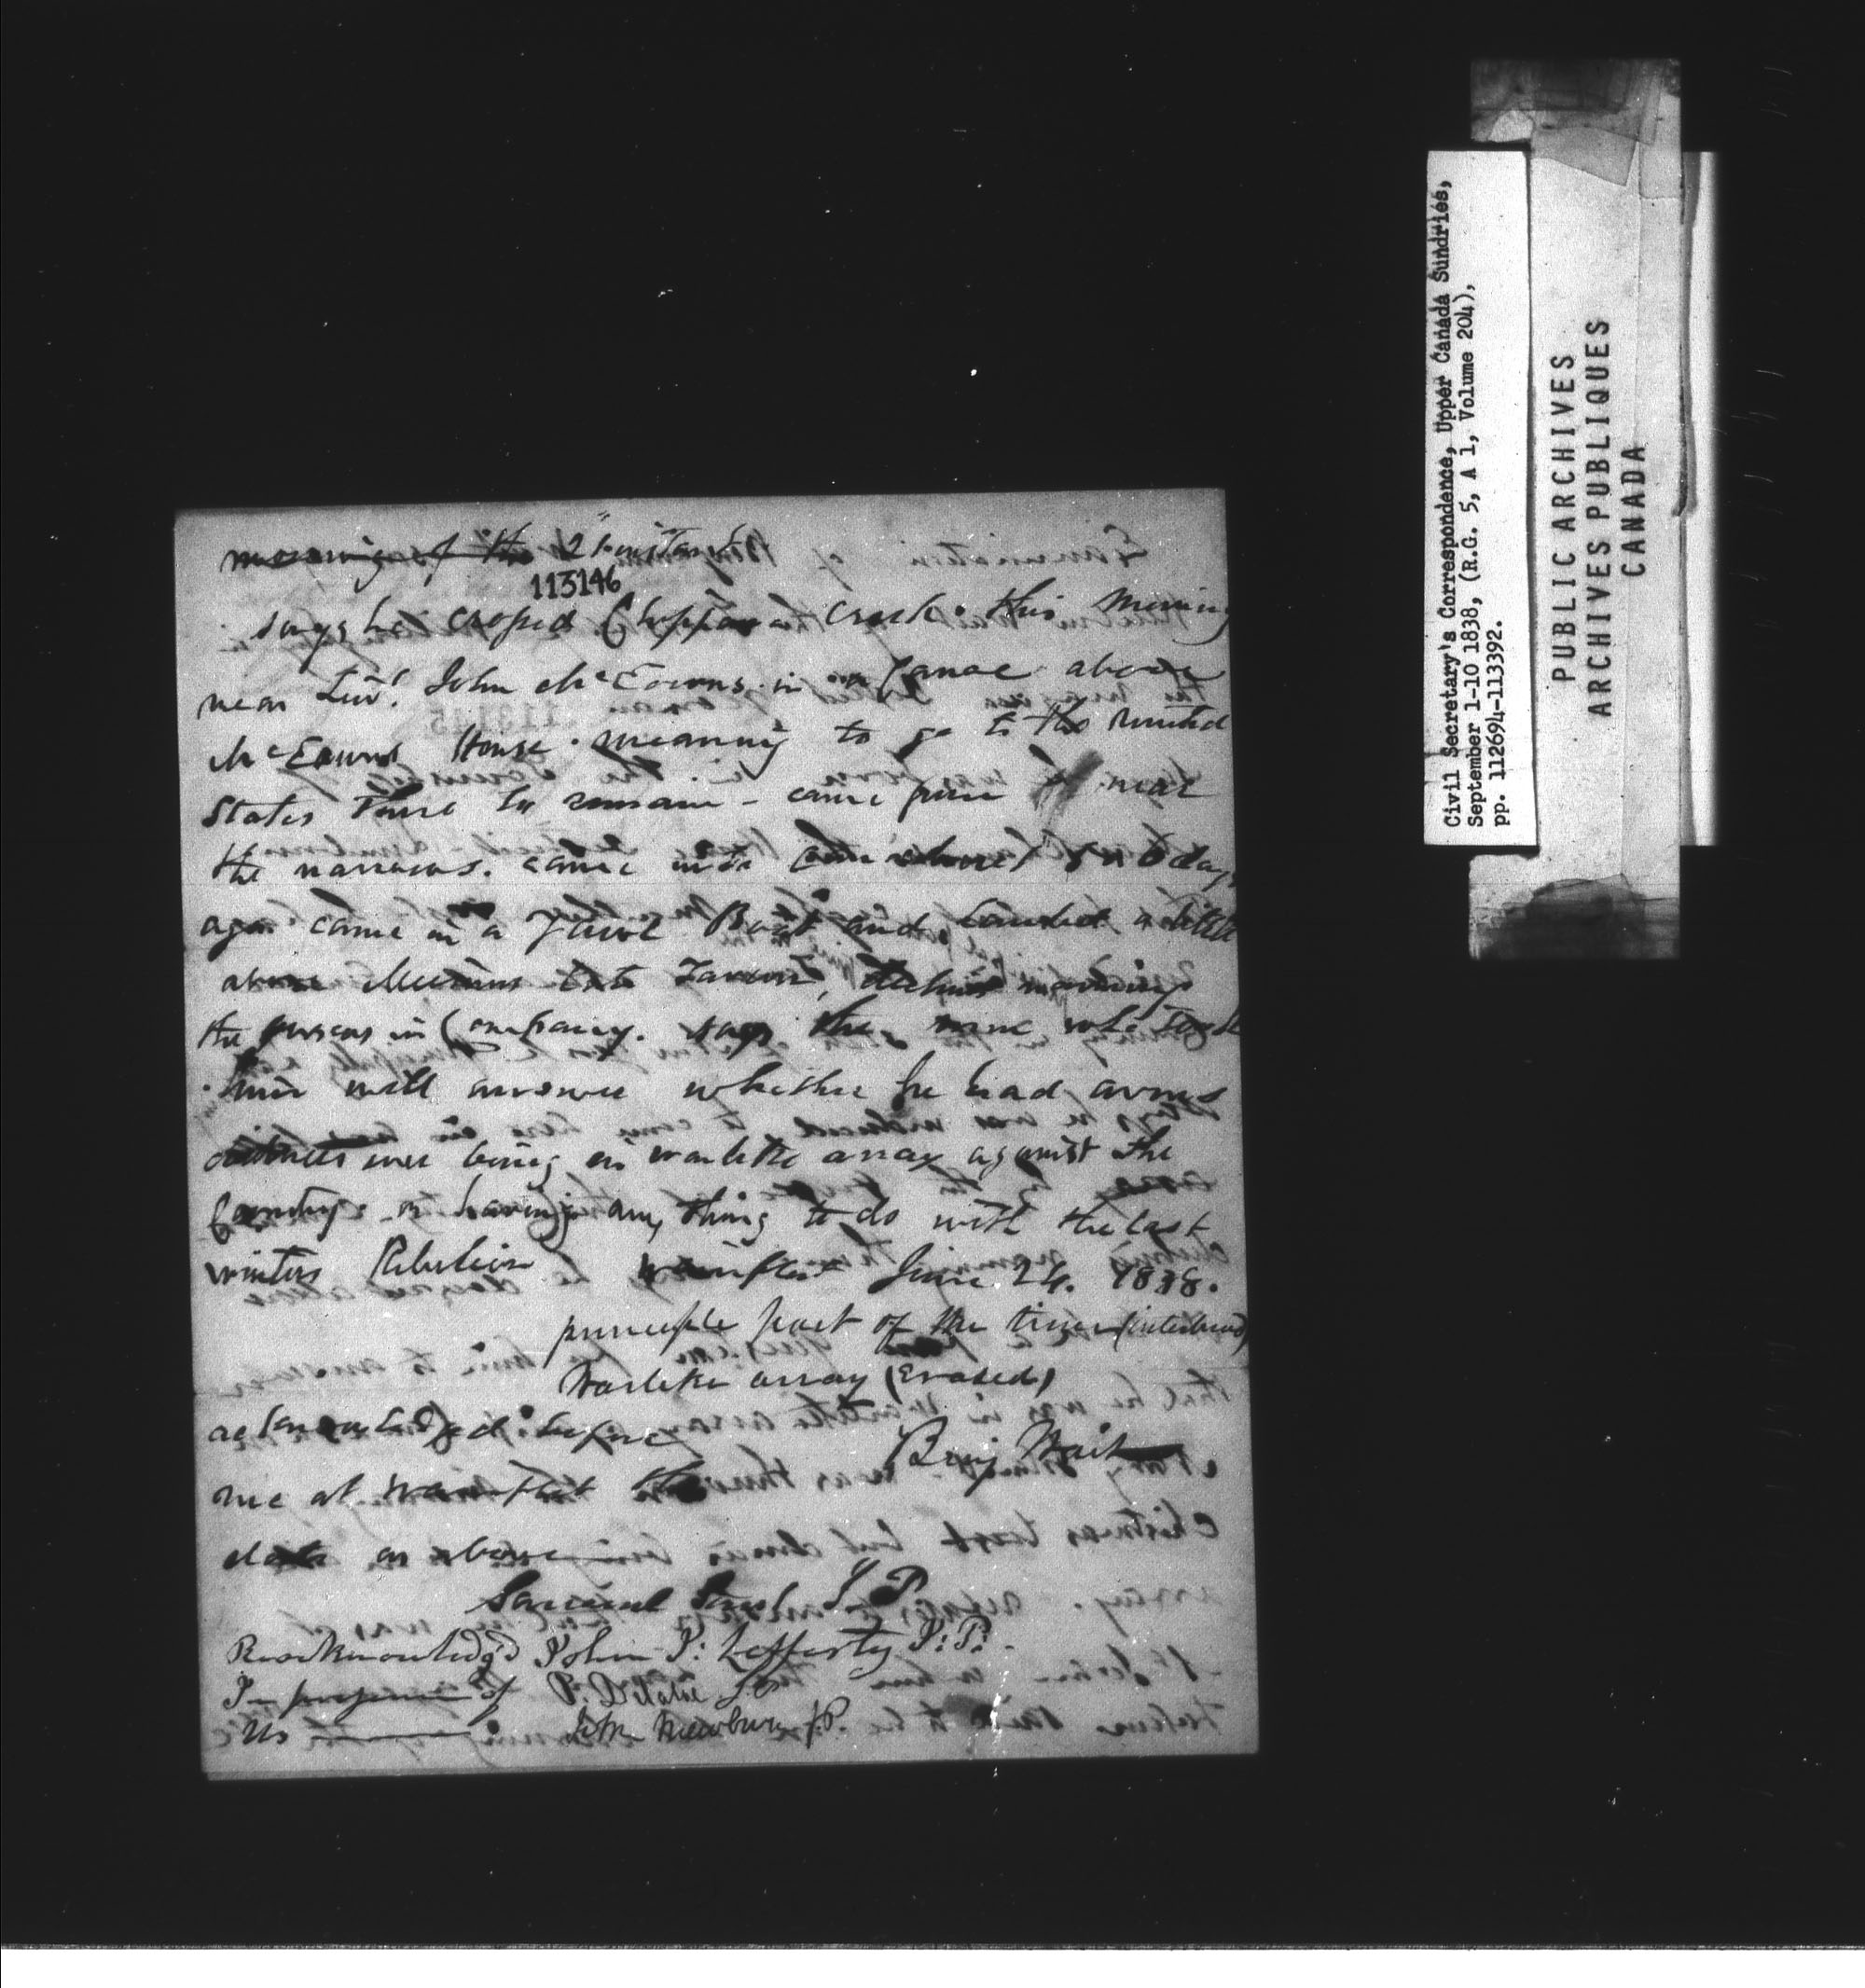 morning of the 21st instant
113146
says he crossed Chippawa creek this Morning
near Liut John McEowns in a Canoe above
McEowns House meaning to go to the united
States there to remain - came from near
the narrows. came into about 5 or 6 days
ago came in a Yawl Boat and Landed a little
above Tavern, declines mentioning
the persons in Company. says the man who took
him will answer whether he had arms
ever being in warlike array against the
Country or having any thing to do with the last
winters Rebelion wainfleet June 24. 1838.
principle part of the time (interlined)
Warlike array (Erased)
acknowledged before
Benj Wait
me at wainfleet the
date as above
Samuel J P
Reacknowledg'd John J: Lefferty J: P:
In presence of P. Delatre J P
Us Newbury JP
Civil Secretary's Correspondence, Upper Canada Sundries,
September 1-10 1838, (R.G. 5, A 1, Volume 204),
pp. 112694-113392.
PUBLIC ARCHIVES
ARCHIVES PUBLIQUES
CANADA